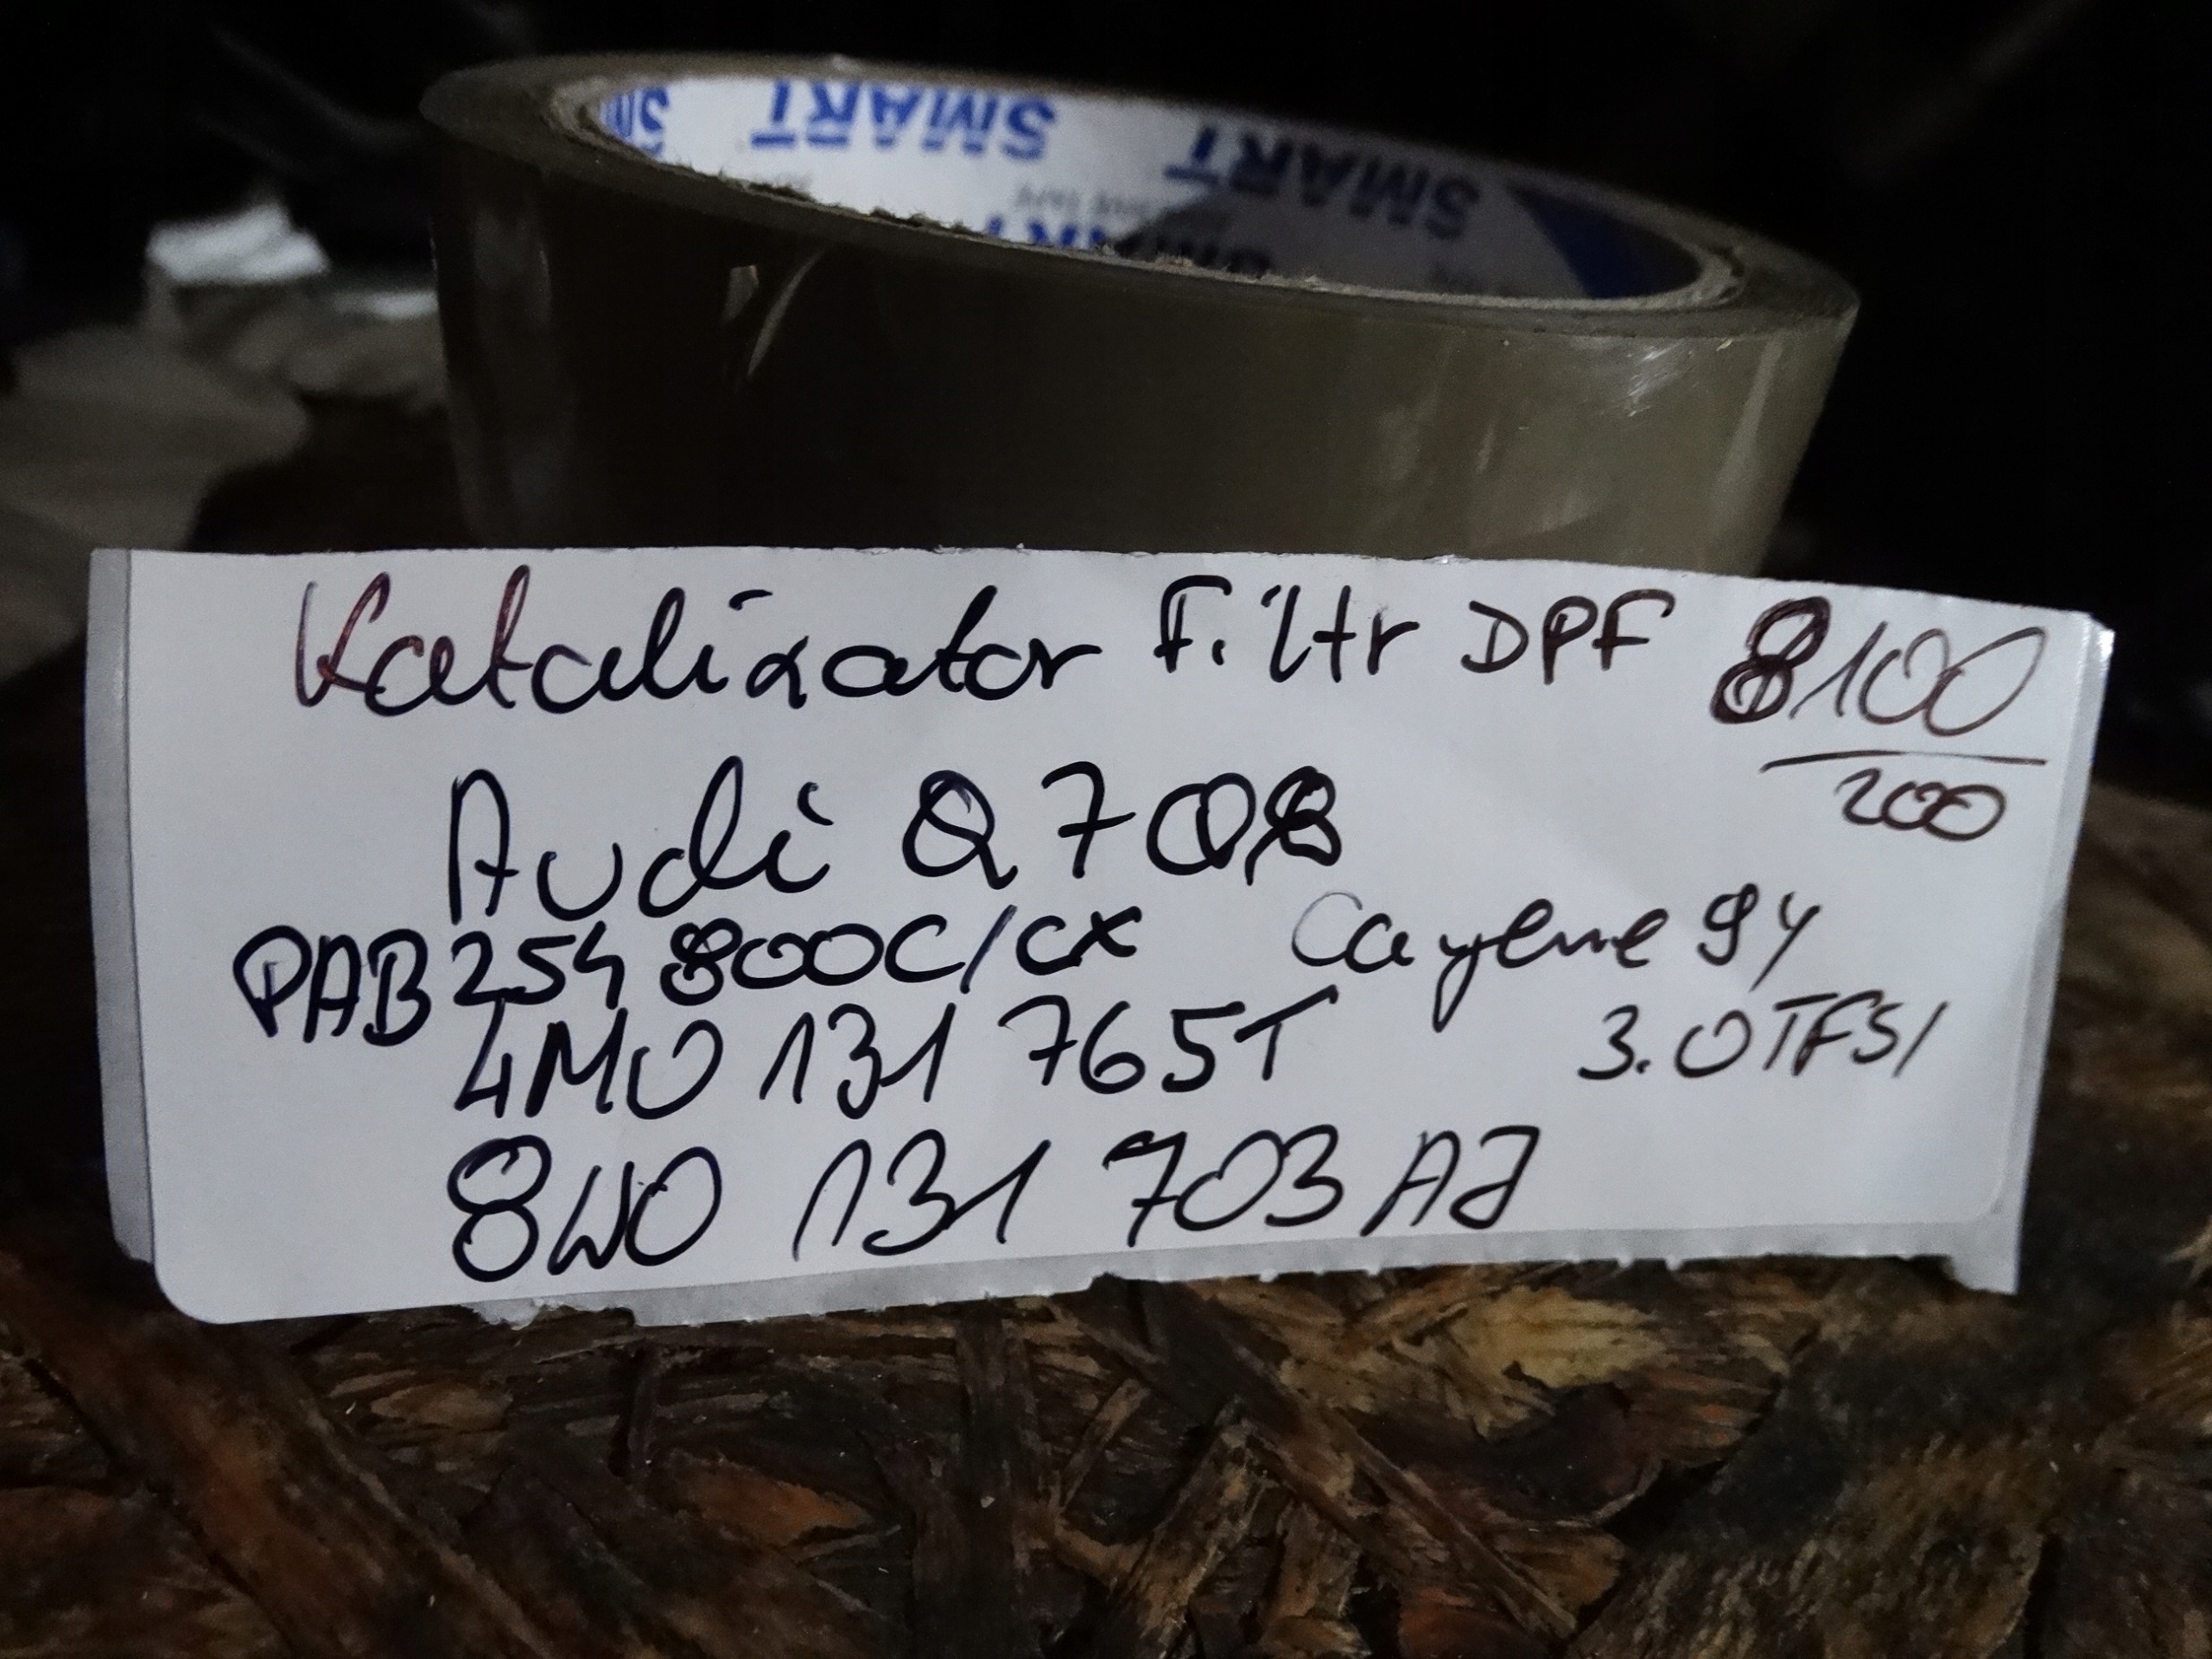 SMART SMART
SMART
Katalizator Filtr DPF 8100
200
Audi Q7 Q8
PAB 254 800C/CX Cayene 9Y
4M0 131 765T 3.0TFSI
8W0 131 703 AJ